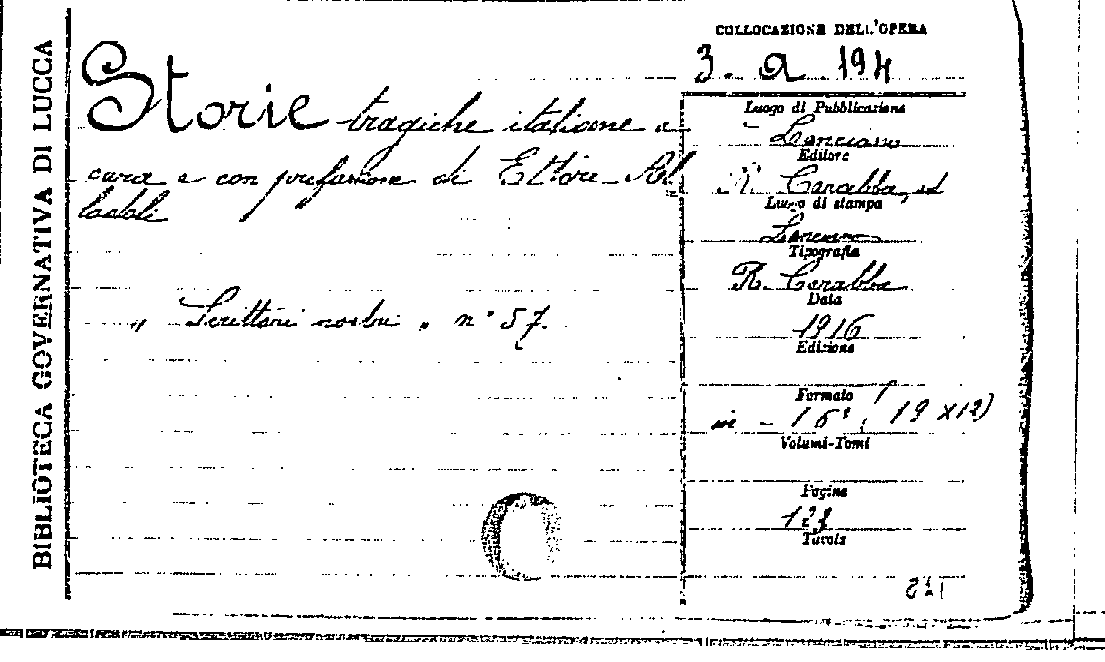 BIBLIOTECA GOVERNATIVA DI LUCCA
Storie tragiche italiane a
cura e con prefazione di Ettore Al
lodoli
„ Scrittori nostri „ n° 57.
COLLOCAZIONE DELL'OPERA
3. a 194
Luogo di Pubblicazione
Lanciano
Editore
R. Carabba, ed
Luogo di stampa
Lanciano
Tipografia
R. Carabba
Data
1916
Edizione
Formato
in - 16° (19 x 12)
Volumi-Tomi
Pagine
Tavole